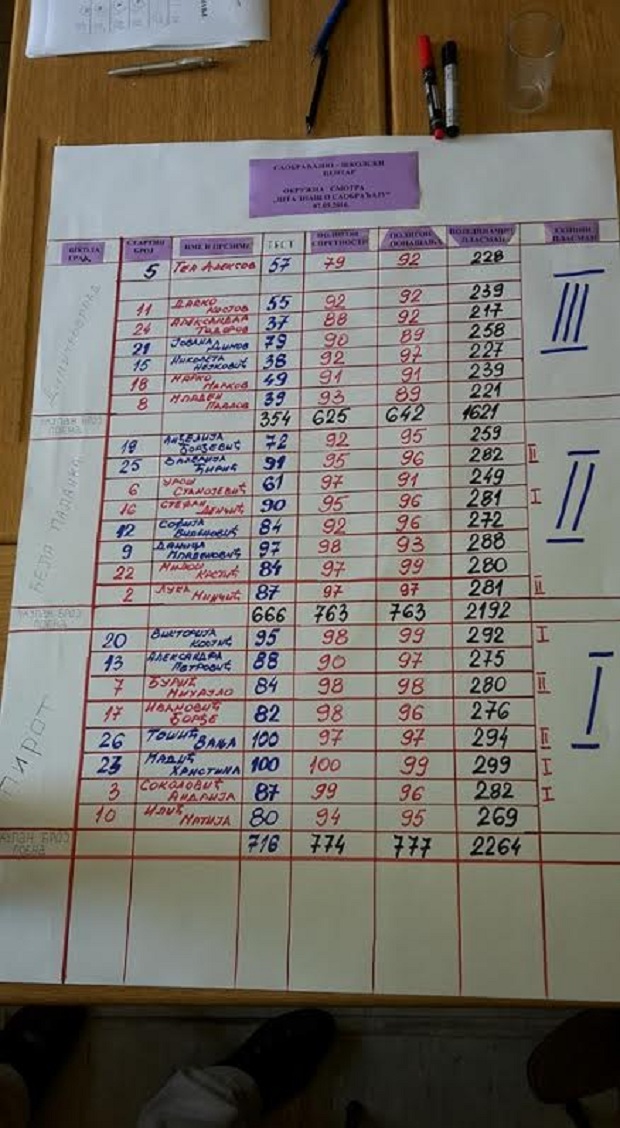 САОБРАЋАЈНО - ШКОЛСКИ
ЦЕНТАР
ОКРУЖНА СМОТРА
„ШТА ЗНАШ О САОБРАЋАЈУ“
ШКОЛА ГРАД СТАРТНИ БРОЈ ИМЕ И ПРЕЗИМЕ ТЕСТ ПОЛИГОН СПРЕТНОСТИ ПОЛИГОН ПОНАШАЊА ПОЈЕДИНАЧНИ ПЛАСМАН ЕКИПНИ ПЛАСМАН
5 ТЕА АЛЕКСОВ 57 79 92 228
239
11 ДАРКО 55 92 92 217
24 АЛЕКСАНДРА ТОДОРОВ 37 88 92 258
21 ЈОВАНА ДИМОВ 79 90 89 227
15 НИКОЛЕТА 38 92 97 239
18 МАРКО МАРКОВ 49 91 91 221
8 МЛАДЕН ПАВЛОВ 39 93 89
III
354 625 642 1621
БЕЛА ПАЛАНКА
19 АНЂЕЛИЈА ЂОРЂЕВИЋ 72 92 95 259
25 ВАЛЕРИЈА ЋИРИЋ 91 95 96 282 II
6 УРОШ СТАНОЈЕВИЋ 61 97 91 249
16 СТЕФАН ДЕНЧИЋ 90 95 96 281 I
12 СОФИЈА 84 92 96 272
9 ДАНИЦА МЛАДЕНОВИЋ 97 98 93 288
22 МИЛОШ КОСТИЋ 84 97 99 280
2 ЛУКА МИНЧИЋ 87 97 97 281 II
II
666 763 763 2192
ПИРОТ
20 ВИКТОРИЈА КОСТИЋ 95 98 99 292 I
13 АЛЕКСАНДРА ПЕТРОВИЋ 88 90 97 275
7 ЂУРИЋ МИХАЈЛО 84 98 98 280 II
17 ИВАНОВИЋ ЂОРЂЕ 82 98 96 276
26 ТОШИЋ ВАЊА 100 97 97 294 II
23 МАДИЋ ХРИСТИНА 100 100 99 299 I
3 СОКОЛОВИЋ АНДРИЈА 87 99 96 282 I
10 ИЛИЋ МАТИЈА 80 94 95 269
I
УКУПАН БРОЈ ПОЕНА 716 774 777 2264